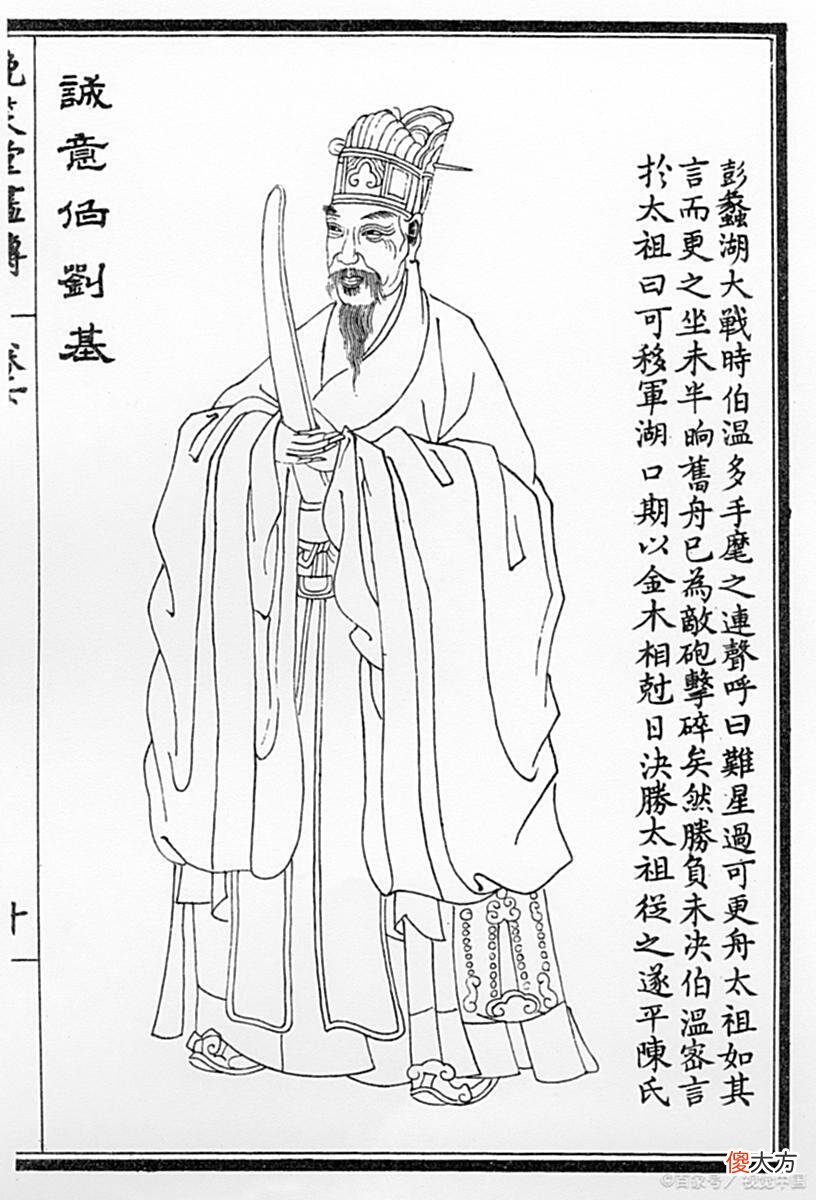 彭蠡湖大戰時伯溫多手麾之連聲呼曰難星過可更舟太祖如其
言而更之坐未半晌舊舟已為敵砲擊碎矣然勝負未决伯溫密言
於太祖曰可移軍湖口期以金木相尅日决勝太祖從之遂平陳氏
誠意伯劉基
晚笑堂畫傳
卷七
十
傻大方
©百家号/视觉中国